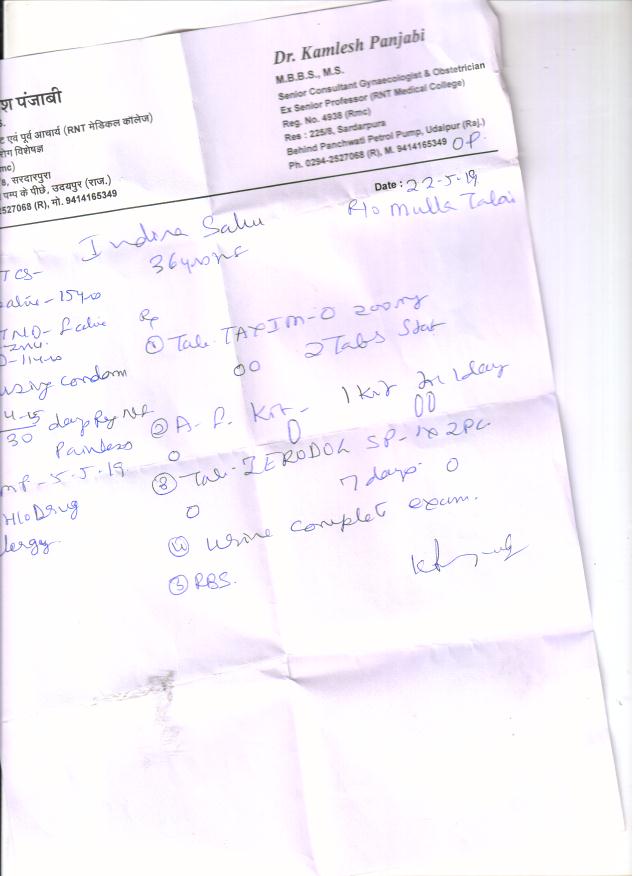 श पंजाबी
ट एवं पूर्व आचार्य (RNT मेडिकल कॉलेज)
रोग विशेषज्ञ
mc)
8, सरदारपुरा
पम्प के पीछे, उदयपुर (राज.)
2527068 (R), मो. 9414165349
Dr. Kamlesh Panjabi
M.B.B.S., M.S.
Senior Consultant Gynaecologist & Obstetrician
Ex Senior Professor (RNT Medical College)
Reg. No. 4938 (Rmc)
Res : 225/8, Sardarpura
Behind Panchwati Petrol Pump, Udaipur (Raj.)
Ph. 0294-2527068 (R), M. 9414165349 OP
Date : 22-5-19
Indira Sahu
R/o Mulla Talai
36yrs
TCS-
alive - 15yrs
- 11yrs
using condom
30 days Reg
Painless
MP - 5.5.19
H/o Drug
lergy
Rx
① Tab. TAXIM-O 200mg
2 Tabs Stat
② A. F. Kit - 1 Kit in 1 day
③ Tab. ZERODOL SP - 1x2 PC
7 days
④ Urine complet exam.
⑤ RBS.